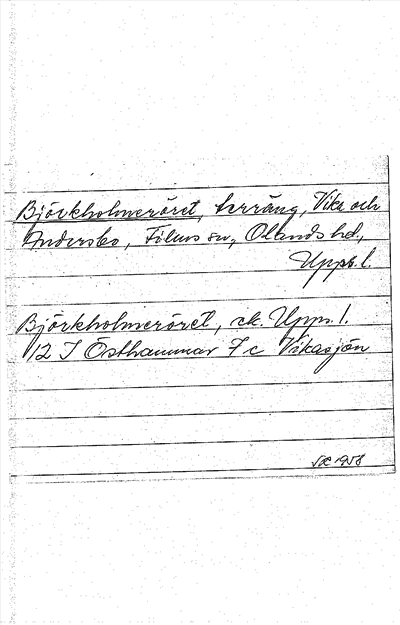 Björkholmsröret, terräng, Vika och
Andersbo, Films sn, Olands hd,
Upps. l.
Björkholmeröret, ek. Upps. l.
12 I Östhammar 7 c Vikasjön
1958